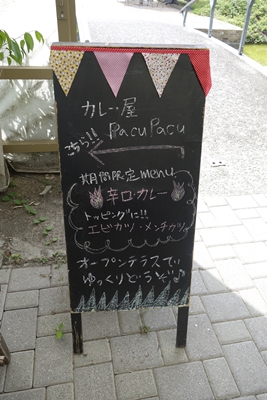 カレー屋
PacuPacu
こちら!!
期間限定menu
辛口カレー
トッピングに!!
エビカツ・メンチカツ
オープンテラスでい
ゆっくりどうぞ♪